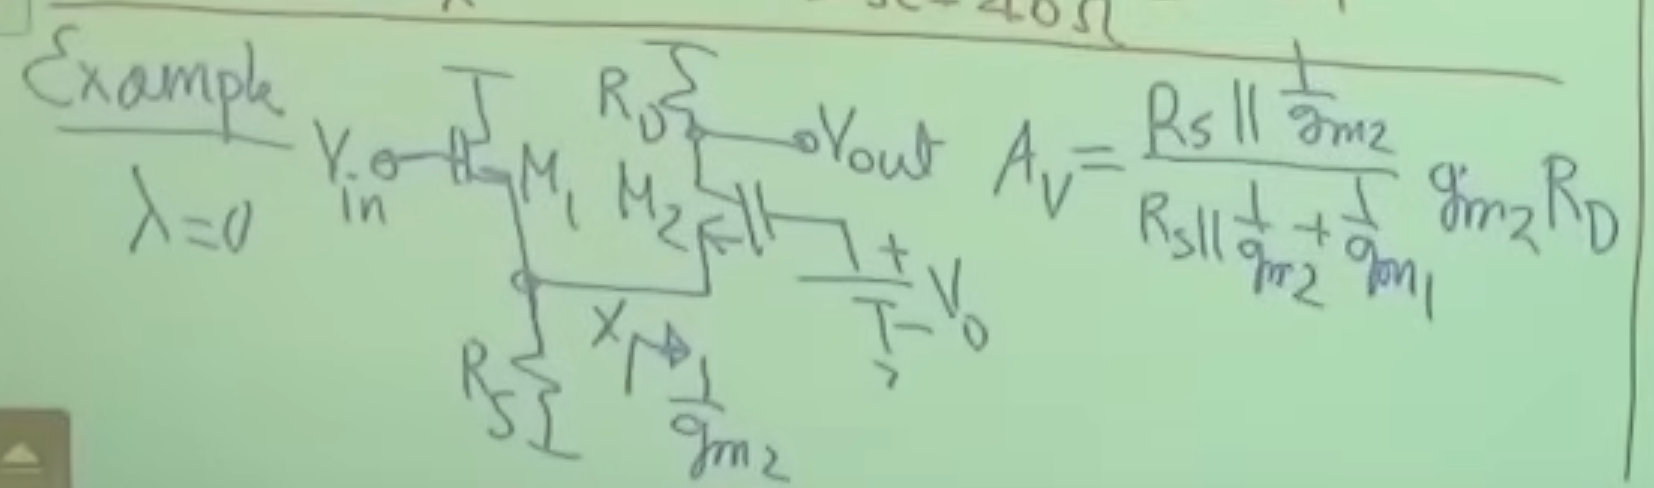 40Ω
Example
λ=0
Vin
M1
RD
Vout
M2
+
V0
−
X
RS
1/gm2
Av = (RS || 1/gm2) / (RS || 1/gm2 + 1/gm1) gm2 RD